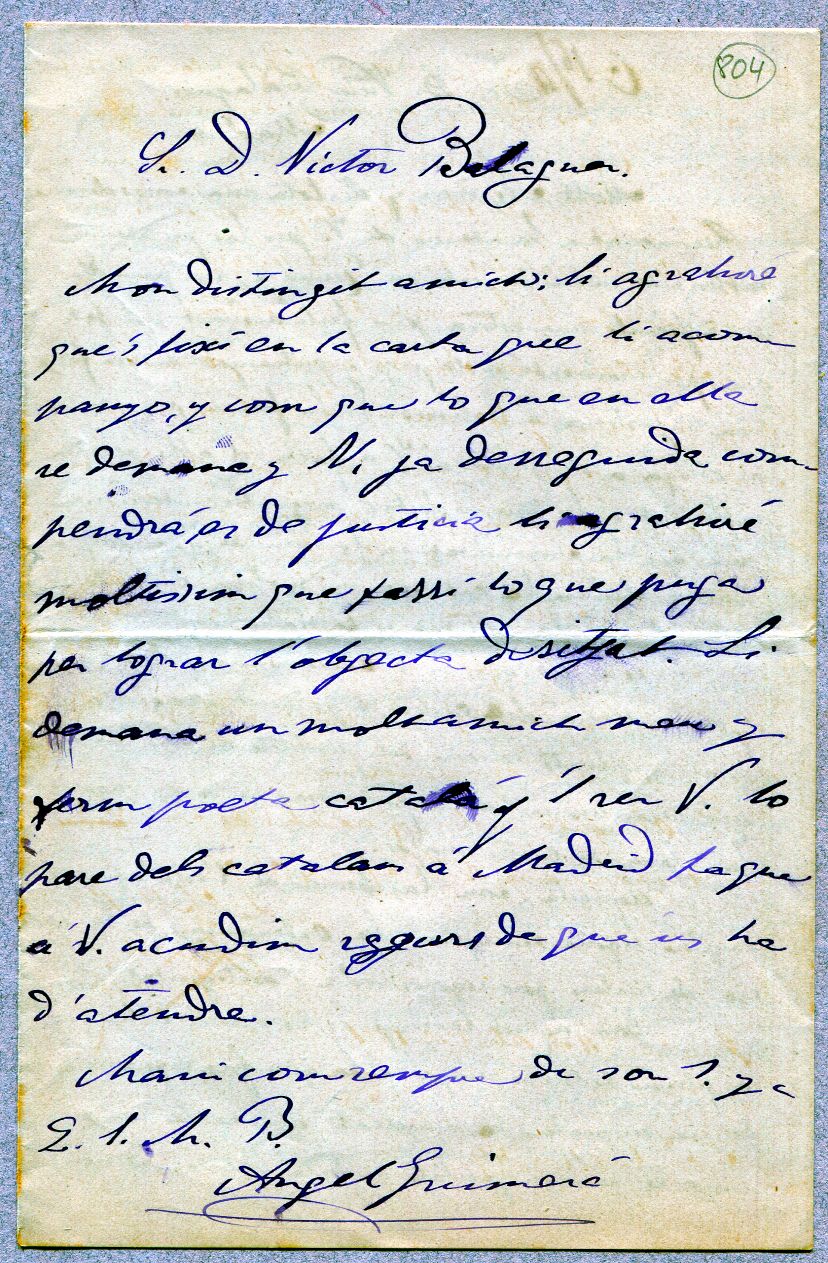 804
Sr. D. Victor Balaguer.
Mon distingit amich: li agrahiré
que's fixi en la carta que li acom
panyo, y com que lo que en ella
se demana y V. ja desseguida com-
pendrá, es de justicia li agrahiré
moltissim que fassi lo que puga
per lograr l'objecta desitjat. Li
demana un molt amich meu y
ferm poeta catalá y 'l ser V. lo
pare dels catalans á Madrid fa que
á V. acudim segurs de que 'ns ha
d'atendre.
Mani com sempre de son S. y a
Q. S. M. B.
Angel Guimerá